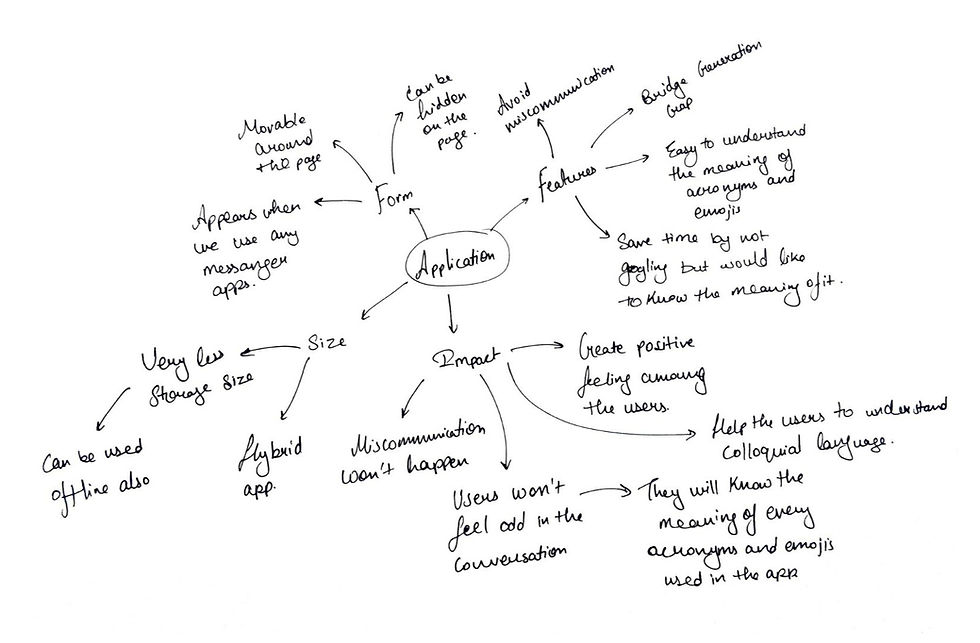 Application
Form
Movable
around
the page
Can be
hidden
on the
page.
Appears when
we use any
messanger
apps.
Features
Avoid
miscommunication
Bridge Generation
Gap
Easy to understand
the meaning of
acronyms and
emojis
Save time by not
gogling but would like
to know the meaning of it.
Size
Very less
storage size
Can be used
offline also
Hybrid
app.
Impact
Create positive
feeling among
the users.
Help the users to understand
colloquial language.
Miscommunication
won't happen
Users won't
feel odd in the
conversation
They will know the
meaning of every
acronyms and emojis
used in the app